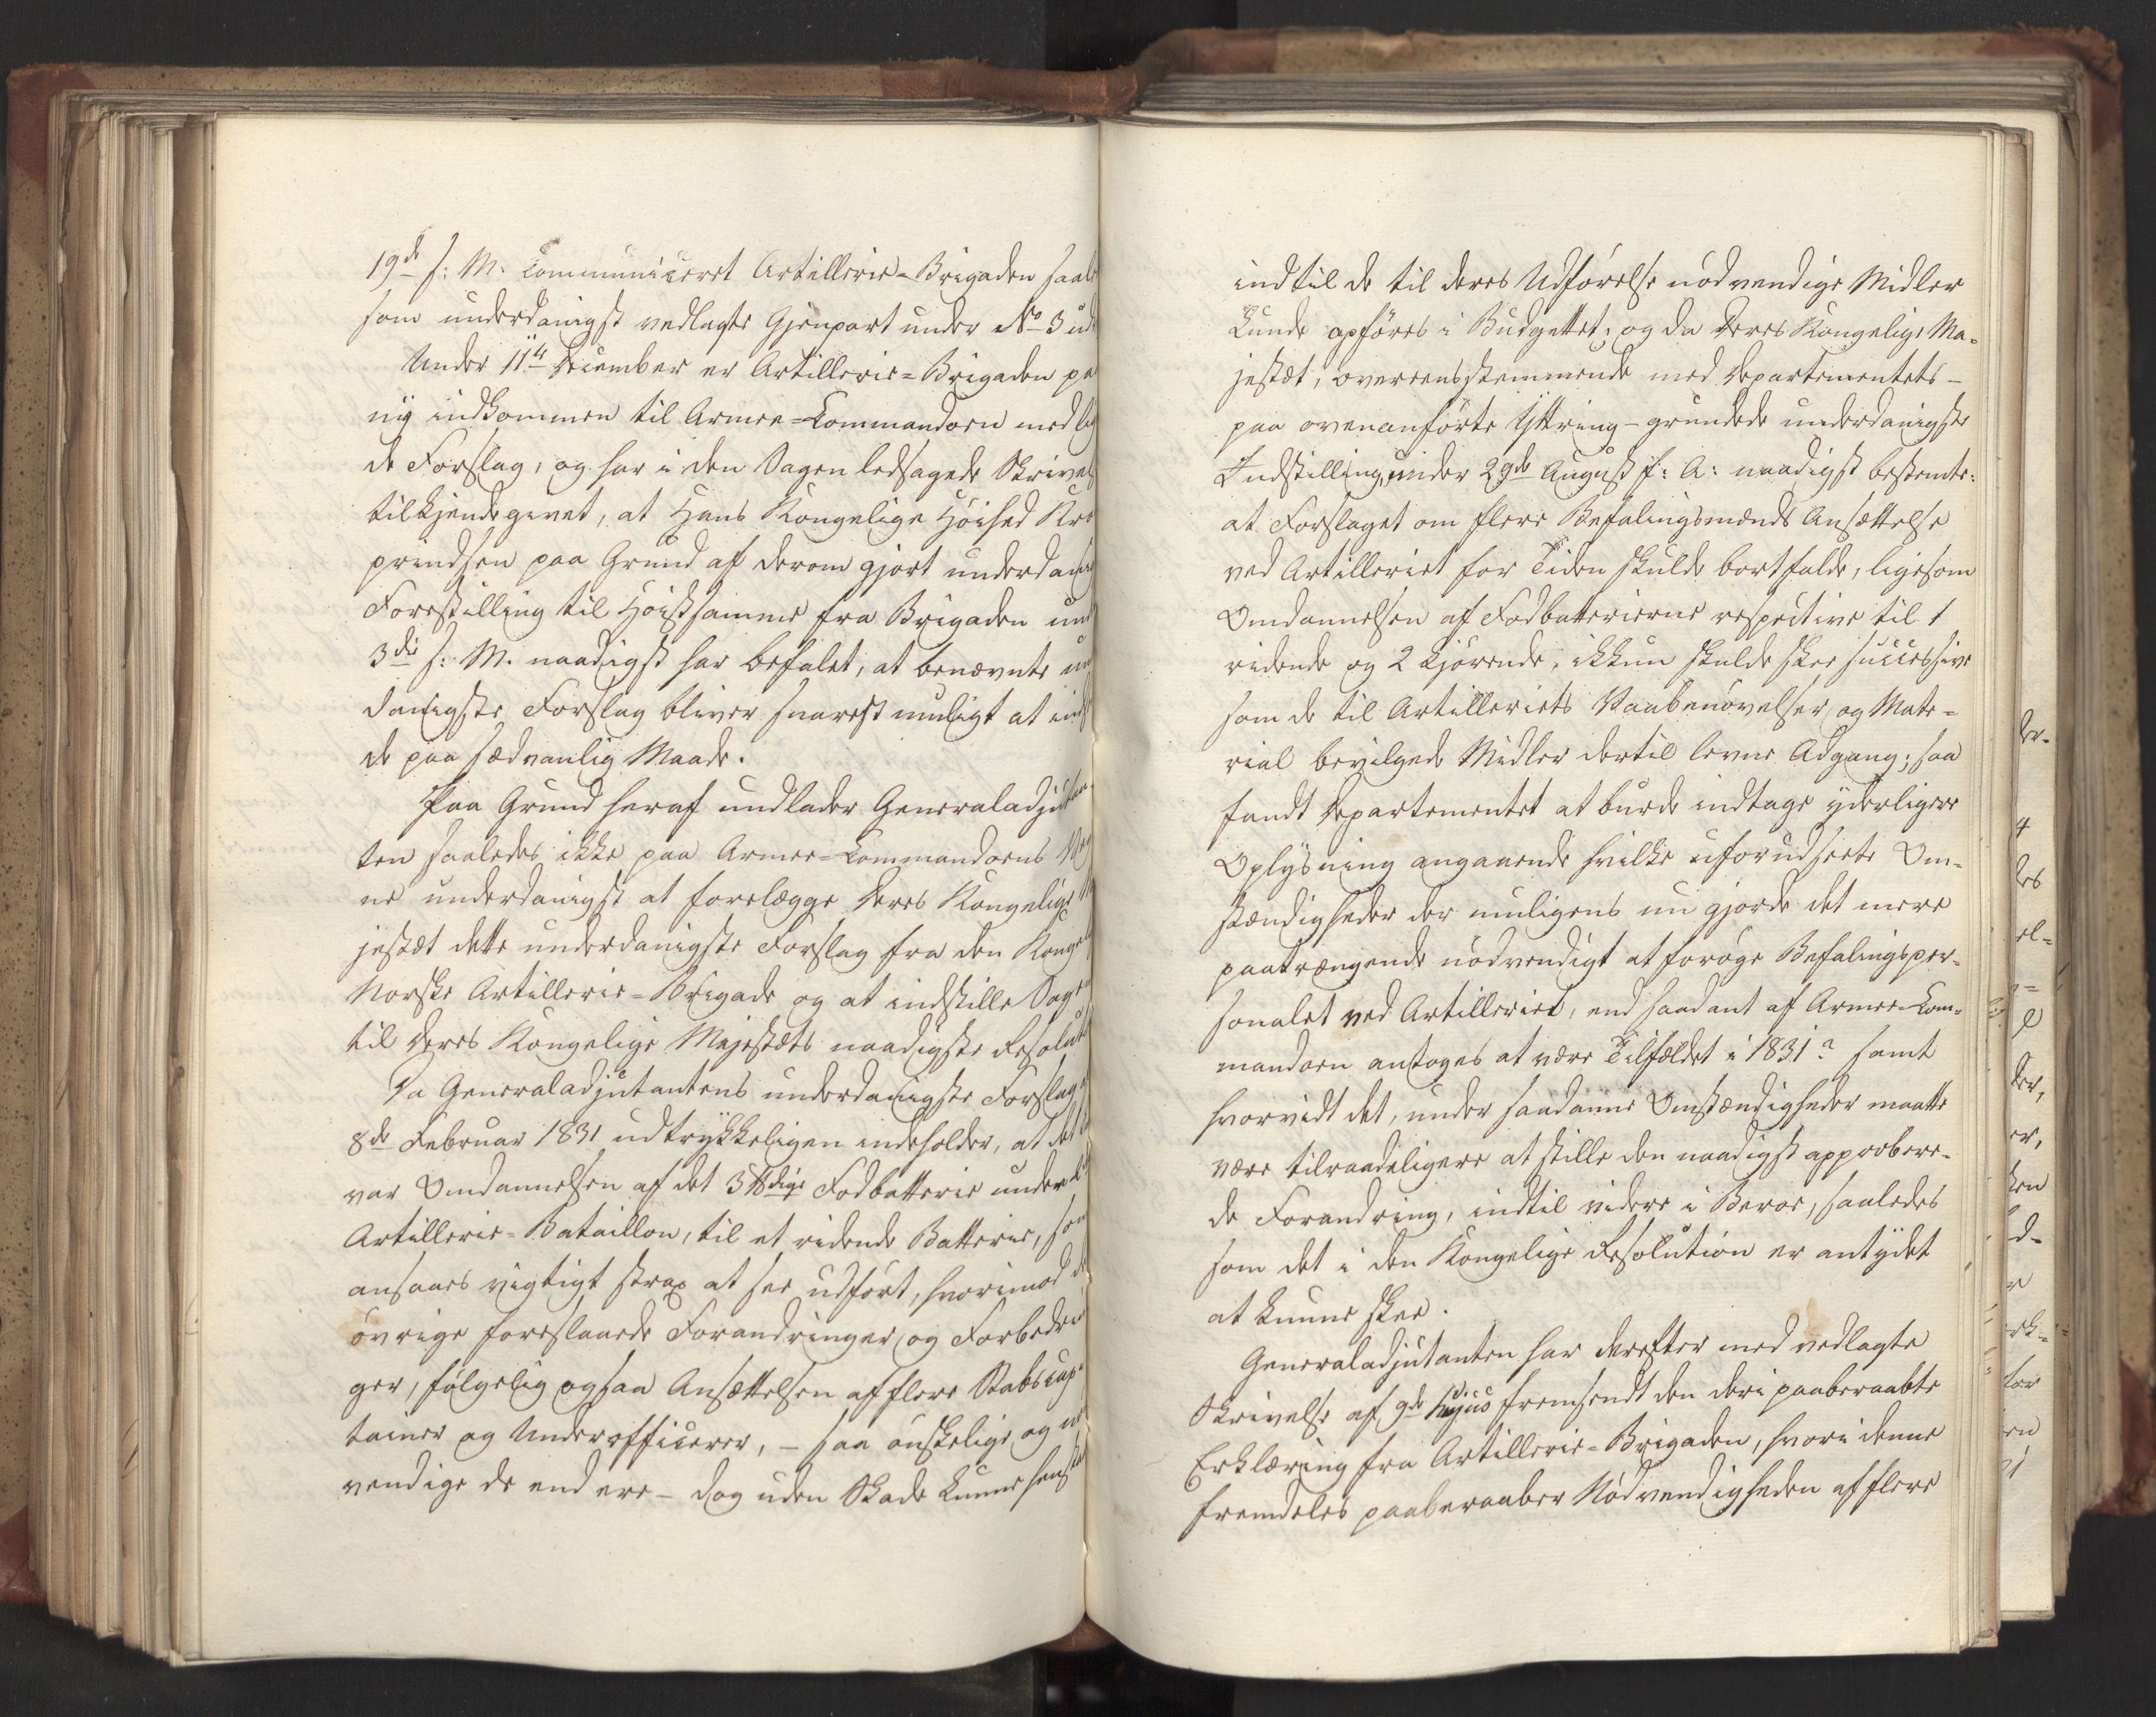 19de s: M. Communiceret Artillerie=Brigaden saale
som underdanigst vedlagte Gjenpart under No 3 ud
Under 11te December er Artillerie=Brigaden pa
ny indkommen til Armee=Commandoen med
de Forslag, og har i den Sagen ledsagede Skrivel
tilkjendegivet, at Hans Kongelige Höihed Kro
prindsen paa Grund af derom gjort underdanig
Forestilling til Höistsamme fra Brigaden und
3die s: M. naadigst har befalet, at benævnte un
danigste Forslag bliver snarest muligt at inds
de paa sædvanlig Maade.
Paa Grund heraf undlader Generaladjutan
ten saaledes ikke paa Armee=Commandoens Veg
ne underdanigst at forelægge Deres Kongelige Ma
jestæt dette underdanigste Forslag fra den Kongel
Norske Artillerie=Brigade og at indstille Sagen
til Deres Kongelige Majestæts naadigste Resolut
Da Generaladjutantens underdanigste Forslag
8de Februar 1831 udtrykkeligen indeholder, at det
var Omdannelsen af det 3 ℔dige Fodbatterie under
Artillerie=Bataillon, til et ridende Batterie, som
ansaaes vigtigt strax at see udfört, hvorimod de
övrige foreslaaede Forandringer og Forbedrin
ger, fölgelig ogsaa Ansættelsen af flere Stabscap
tainer og Underofficerer, – saa önskelige og nö
vendige de end ere – dog uden Skade kunne henst
indtil de til deres Udförelse nödvendige Midler
kunde opföres i Budgettet; og da Deres Kongelige Ma=
jestæt, overeensstemmende med Departementets –
paa ovenanförte Yttring – grundede underdanigste
Indstilling, under 29de August f: A: naadigst bestemte:
at Forslaget om flere Befalingsmænds Ansættelse
ved Artilleriet for Tiden skulde bortfalde, ligesom
Omdannelsen af Fodbatterierne respective til 1
ridende og 2 kjörende, ikkun skulde skee successive
som de til Artilleriets Vaabenövelser og Mate=
rial bevilgede Midler dertil levne Adgang; saa
fandt Departementet at burde indtage yderligere
Oplysning angaaende hvilke uforudseete Om=
stændigheder der muligens nu gjorde det mere
paatrængende nödvendigt at foröge Befalingsper=
sonalet ved Artilleriet, end saadant af Armee-Com=
mandoen antoges at være Tilfældet i 1831? samt
hvorvidt det, under saadanne Omstændigheder maatte
være tilraadeligere at stille den naadigst approbere=
de Forandring, indtil videre i Beroe, saaledes
som det i den Kongelige Resolution er antydet
at kunne skee.
Generaladjutanten har derefter med vedlagte
Skrivelse af 9de hujus fremsendt den deri paaberaabte
Erklæring fra Artillerie=Brigaden, hvori denne
fremdeles paaberaaber Nödvendigheden af flere